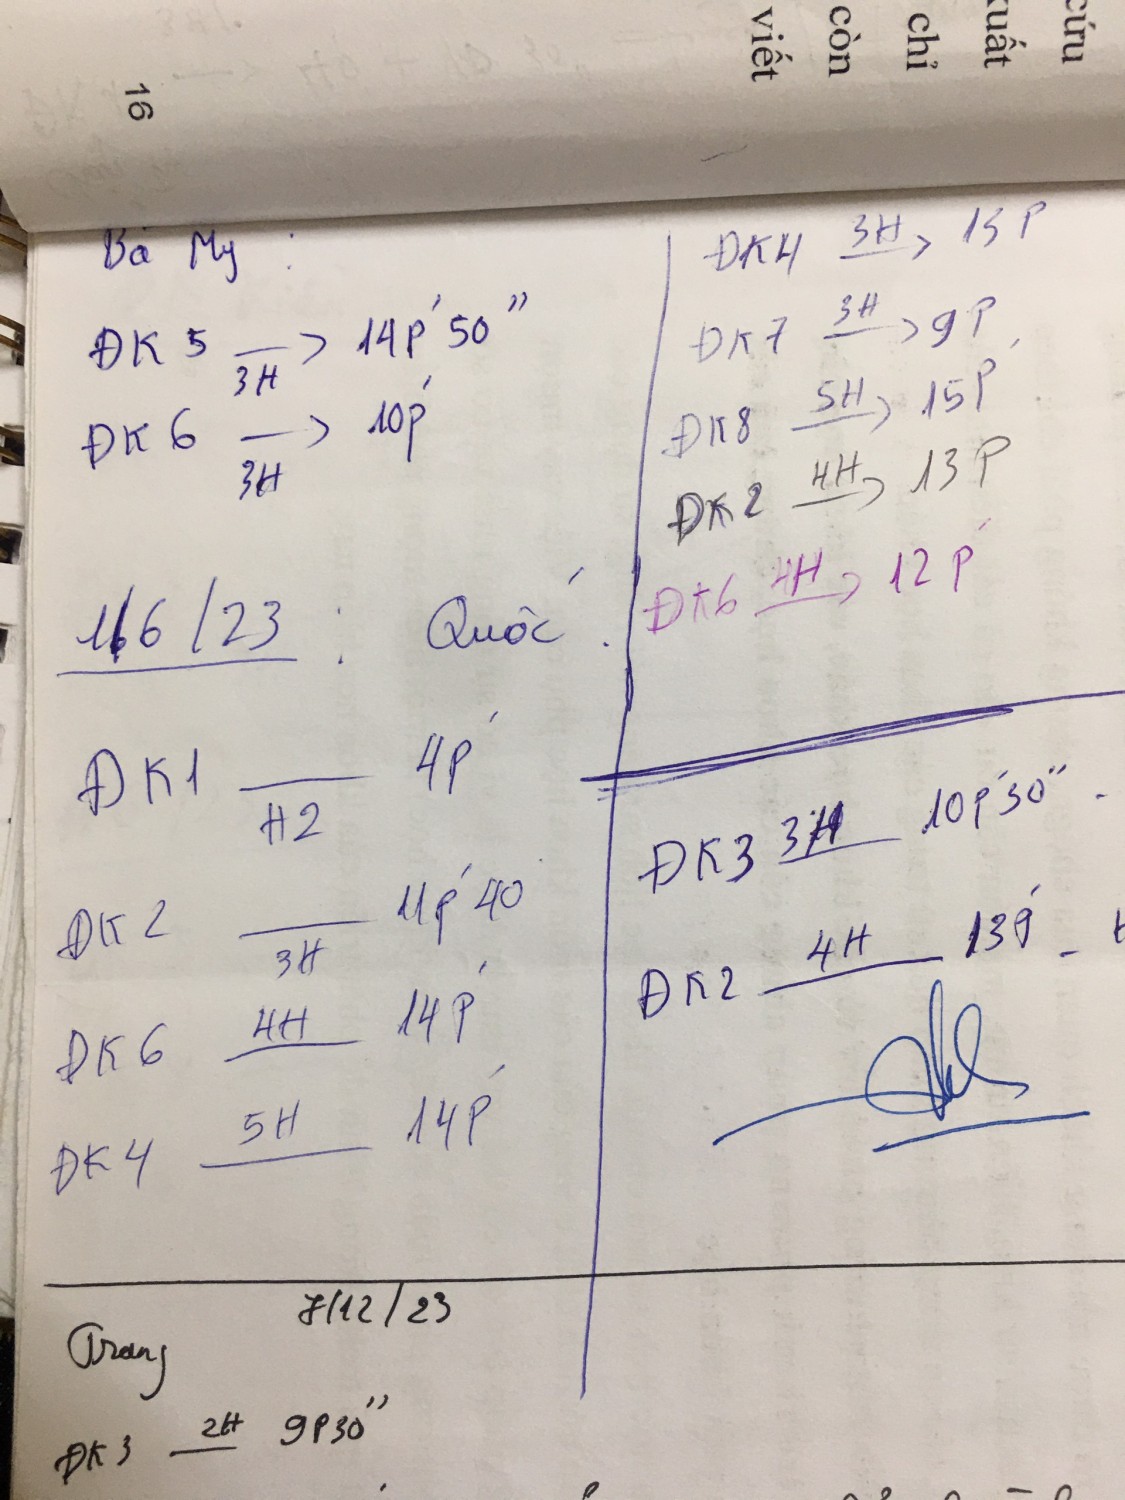 cứu
xuất
chỉ
còn
viết
16
Bà My :
ĐK 5 3H > 14P' 50"
ĐK 6 3H > 10P'
1/6/23 : Quốc .
ĐK1 H2 4P'
ĐK 2 3H 11P' 40
ĐK 6 4H 14P'
ĐK 4 5H 14P'
ĐK4 3H > 13P
ĐK7 3H > 9P'
ĐK8 5H > 15P'
ĐK2 4H > 13P
ĐK6 4H > 12P'
ĐK3 3H 10P'30" -
ĐK2 4H 13P' -
7/12/23
Trang
ĐK3 2H 9P30"